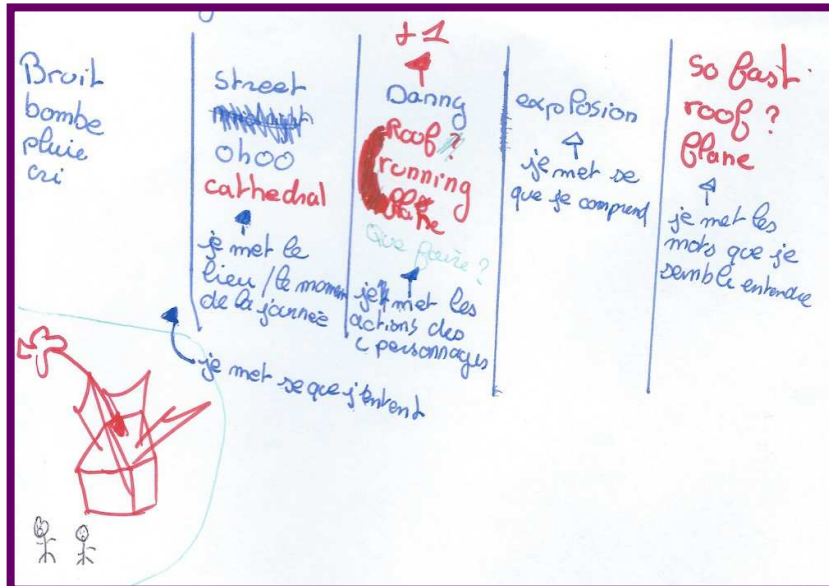 Bruit
bombe
pluie
cri
street
ohoo
cathedral
je met le
lieu / le momen
de la journée
je met se que j'entend
+1
Danny
Roof ?
running
plane
Que faire ?
je met les
actions des
personnages
explosion
je met se
que je comprend
so fast
roof ?
plane
je met les
mots que je
semble entendre